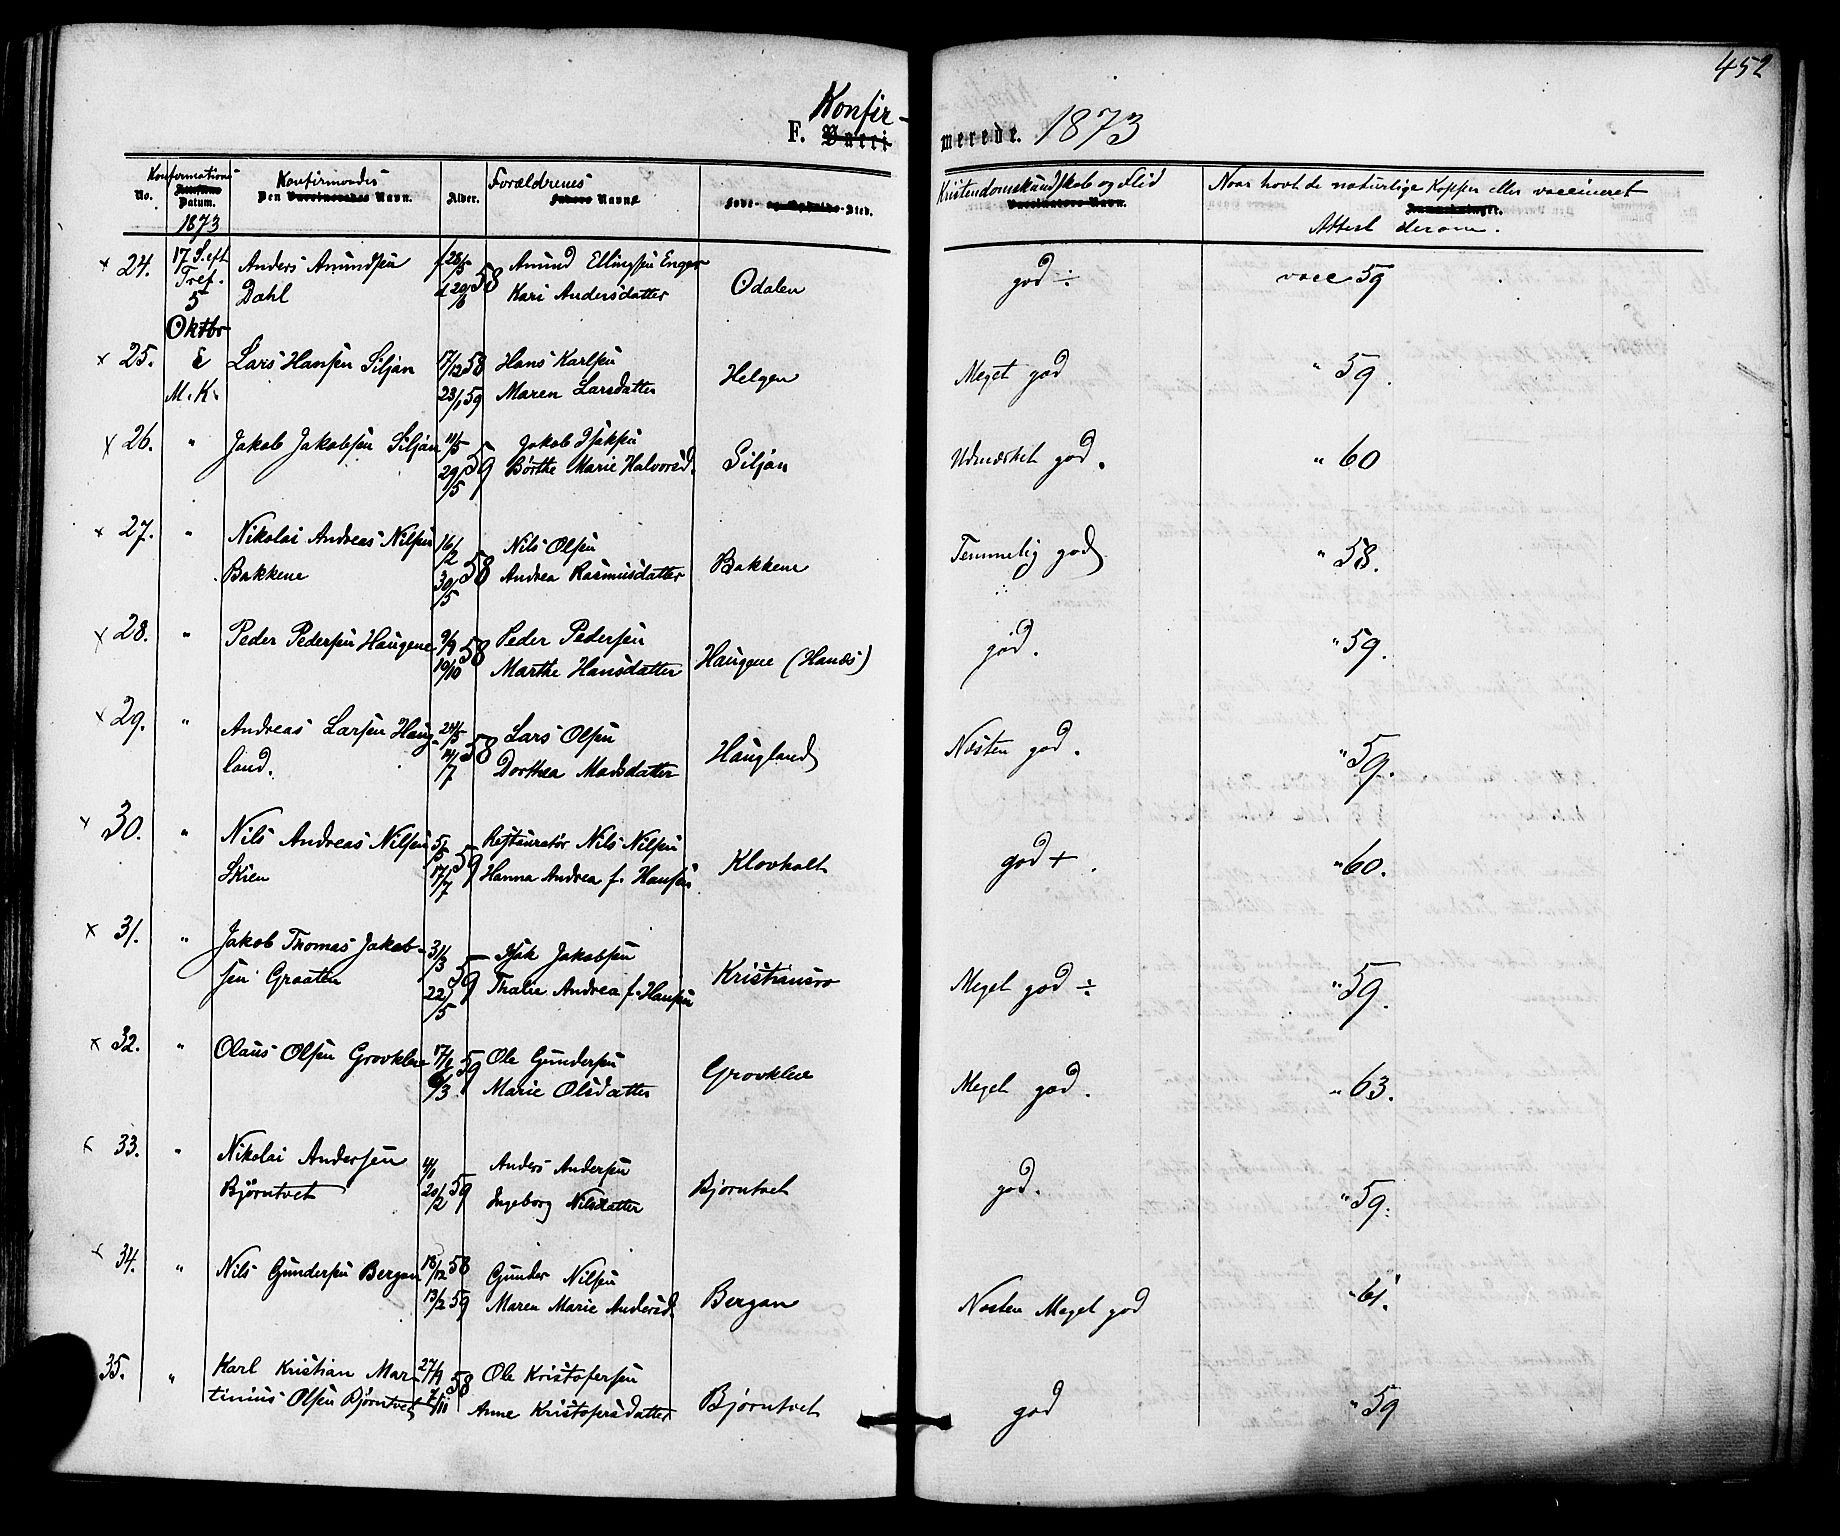 452
Konfir-
F. Vacci merede. 1873
No. Konfirmations Datum. 1873
Konfirmeredes Den Vaccineredes Navn.
Alder.
Forældrenes Navne
Føde- og Opholds-Sted.
Kristendomskundskab og Flid Vaccinators Navn.
Naar havt de naturlige Kopper eller vaccineret Anmærkninger.
Attest derom.
24. 17 S. eft Tref. Anders Amundsen f 28/5 58 Amund Ellingsen Enger Odalen god ÷ vacc 59
5 Dahl d 20/6 Kari Andersdatter
Oktbr
25. E Lars Hansen Siljan 17/12 58 Hans Karlsen Helgen Meget god " 59.
M. K. 23/1 59 Maren Larsdatter
26. " Jakob Jakobsen Siljan 11/5 59 Jakob Isaksen Siljan Udmærket god. " 60
29/5 Børthe Marie Halvorsd.
27. " Nikolai Andreas Nilsen 16/2 58 Nils Olsen Bakkene Temmelig god " 58.
Bakkene 30/5 Andrea Rasmusdatter
28. " Peder Pedersen Haugene 9/9 58 Peder Pedersen Haugene (Hanæs) god. " 59.
10/10 Marthe Hansdatter
29. " Andreas Larsen Haug- 24/5 58 Lars Olsen Haugland Næsten god. " 59.
land. 14/7 Dorthea Madsdatter
30. " Nils Andreas Nilsen 5/5 59 Restauratør Nils Nilsen Klovholt god + " 60.
Skien 17/7 Hanna Andrea f. Hansen
31. " Jakob Thomas Jakob- 31/3 59 Isak Jakobsen Kristiansro Meget god ÷ " 59.
sen Graaten 22/5 Thalie Andrea f. Hansen
32. " Olaus Olsen Grovkleve 17/1 59 Ole Gundersen Grovkleve Meget god. " 63.
6/3 Marie Olsdatter
33. " Nikolai Andersen 4/1 59 Anders Andersen Bjørntvet god. " 59.
Bjørntvet 20/2 Ingeborg Nilsdatter
34. " Nils Gundersen Bergan 18/12 58 Gunder Nilsen Bergan Næsten Meget god " 61.
13/2 59 Maren Marie Andersd.
35. " Karl Kristian Mar- 27/9 58 Ole Kristofersen Bjørntvet god " 59
tinius Olsen Bjørntvet 7/11 Anne Kristofersdatter